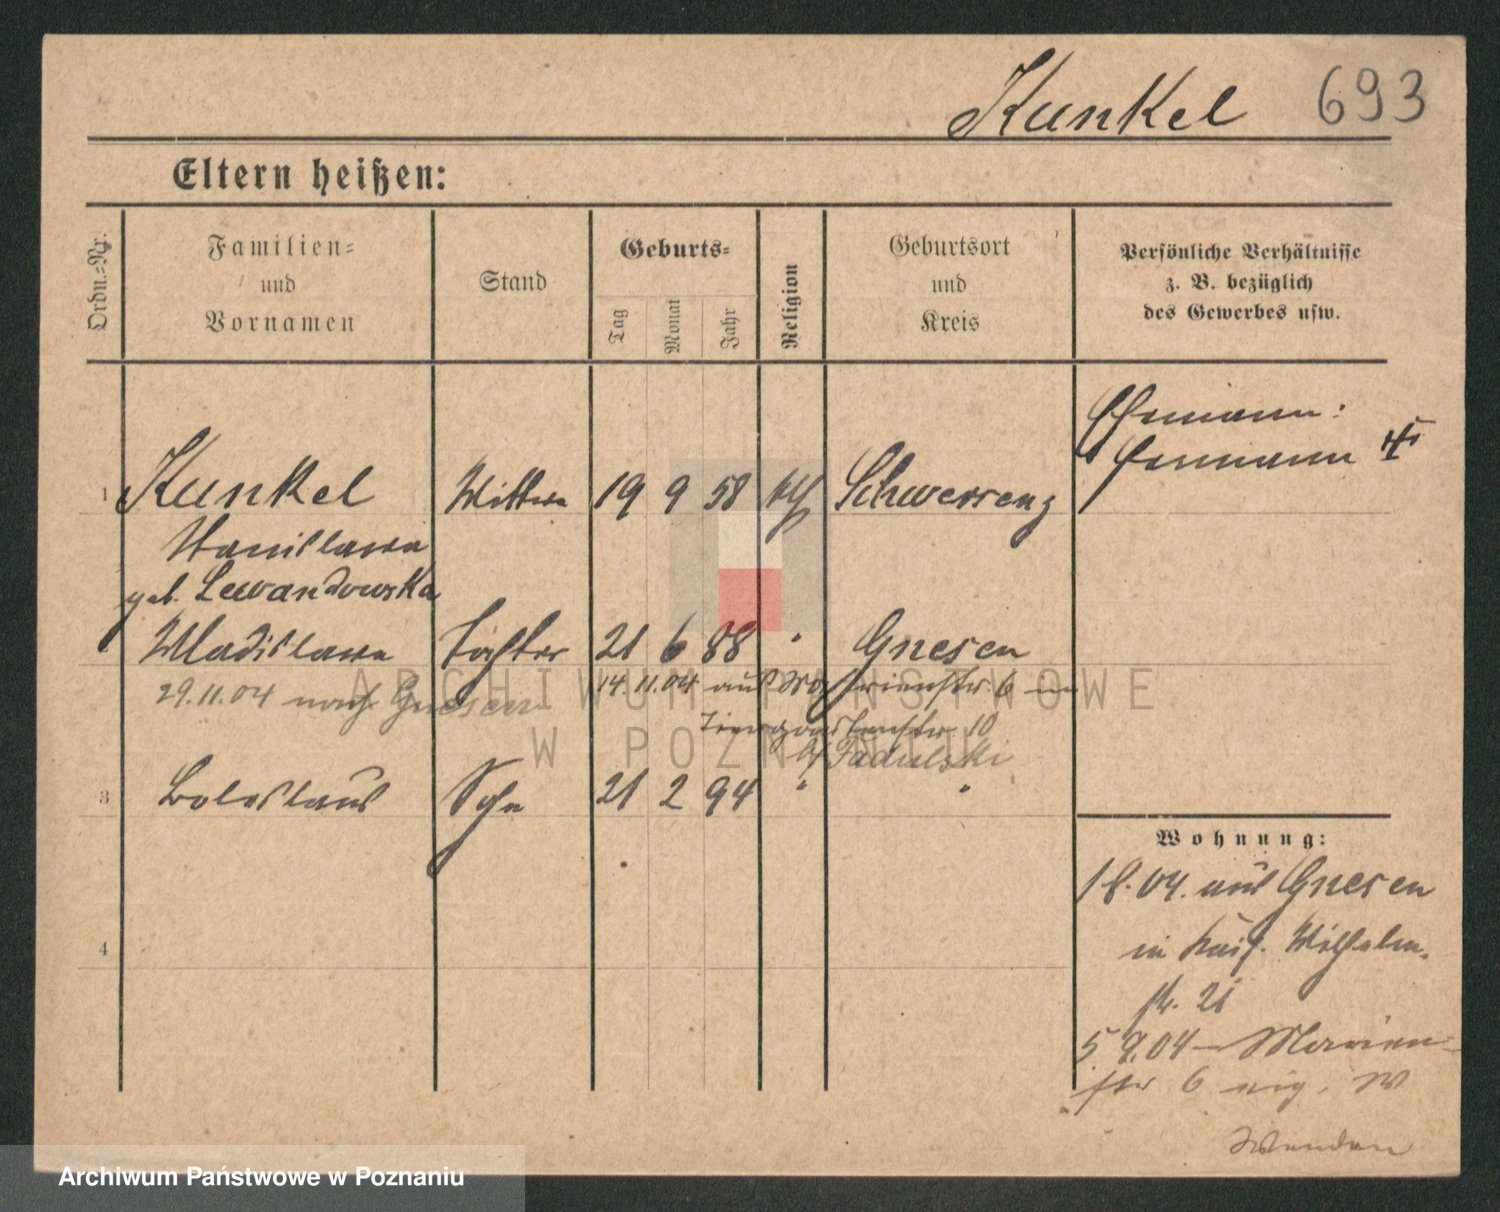 Kunkel 693
Eltern heißen:
Ordn.=Nr.
Familien=
und
Vornamen
Stand
Geburts=
Tag
Monat
Jahr
Religion
Geburtsort
und
Kreis
Persönliche Verhältnisse
z. B. bezüglich
des Gewerbes usw.
Ehemann:
Hermann
1 Kunkel Wittwe 19 9 58 kth Schwersenz
Stanislawa
geb. Lewandowska
Wladislawa Tochter 21 6 88 " Gnesen
29.11.04 nach Gnesen
14.11.04 aus Marienstr. 6 in
Tiergartenstr 10
b/ Fadulski
3 Boleslaus Sohn 21 2 94 " "
4
Wohnung:
1 8. 04. aus Gnesen
in Kais. Wilhelm.
str. 21
5 9.04 – Marien-
str 6 eig. W
Wenden
ARCHIWUM PAŃSTWOWE
W POZNANIU
Archiwum Państwowe w Poznaniu